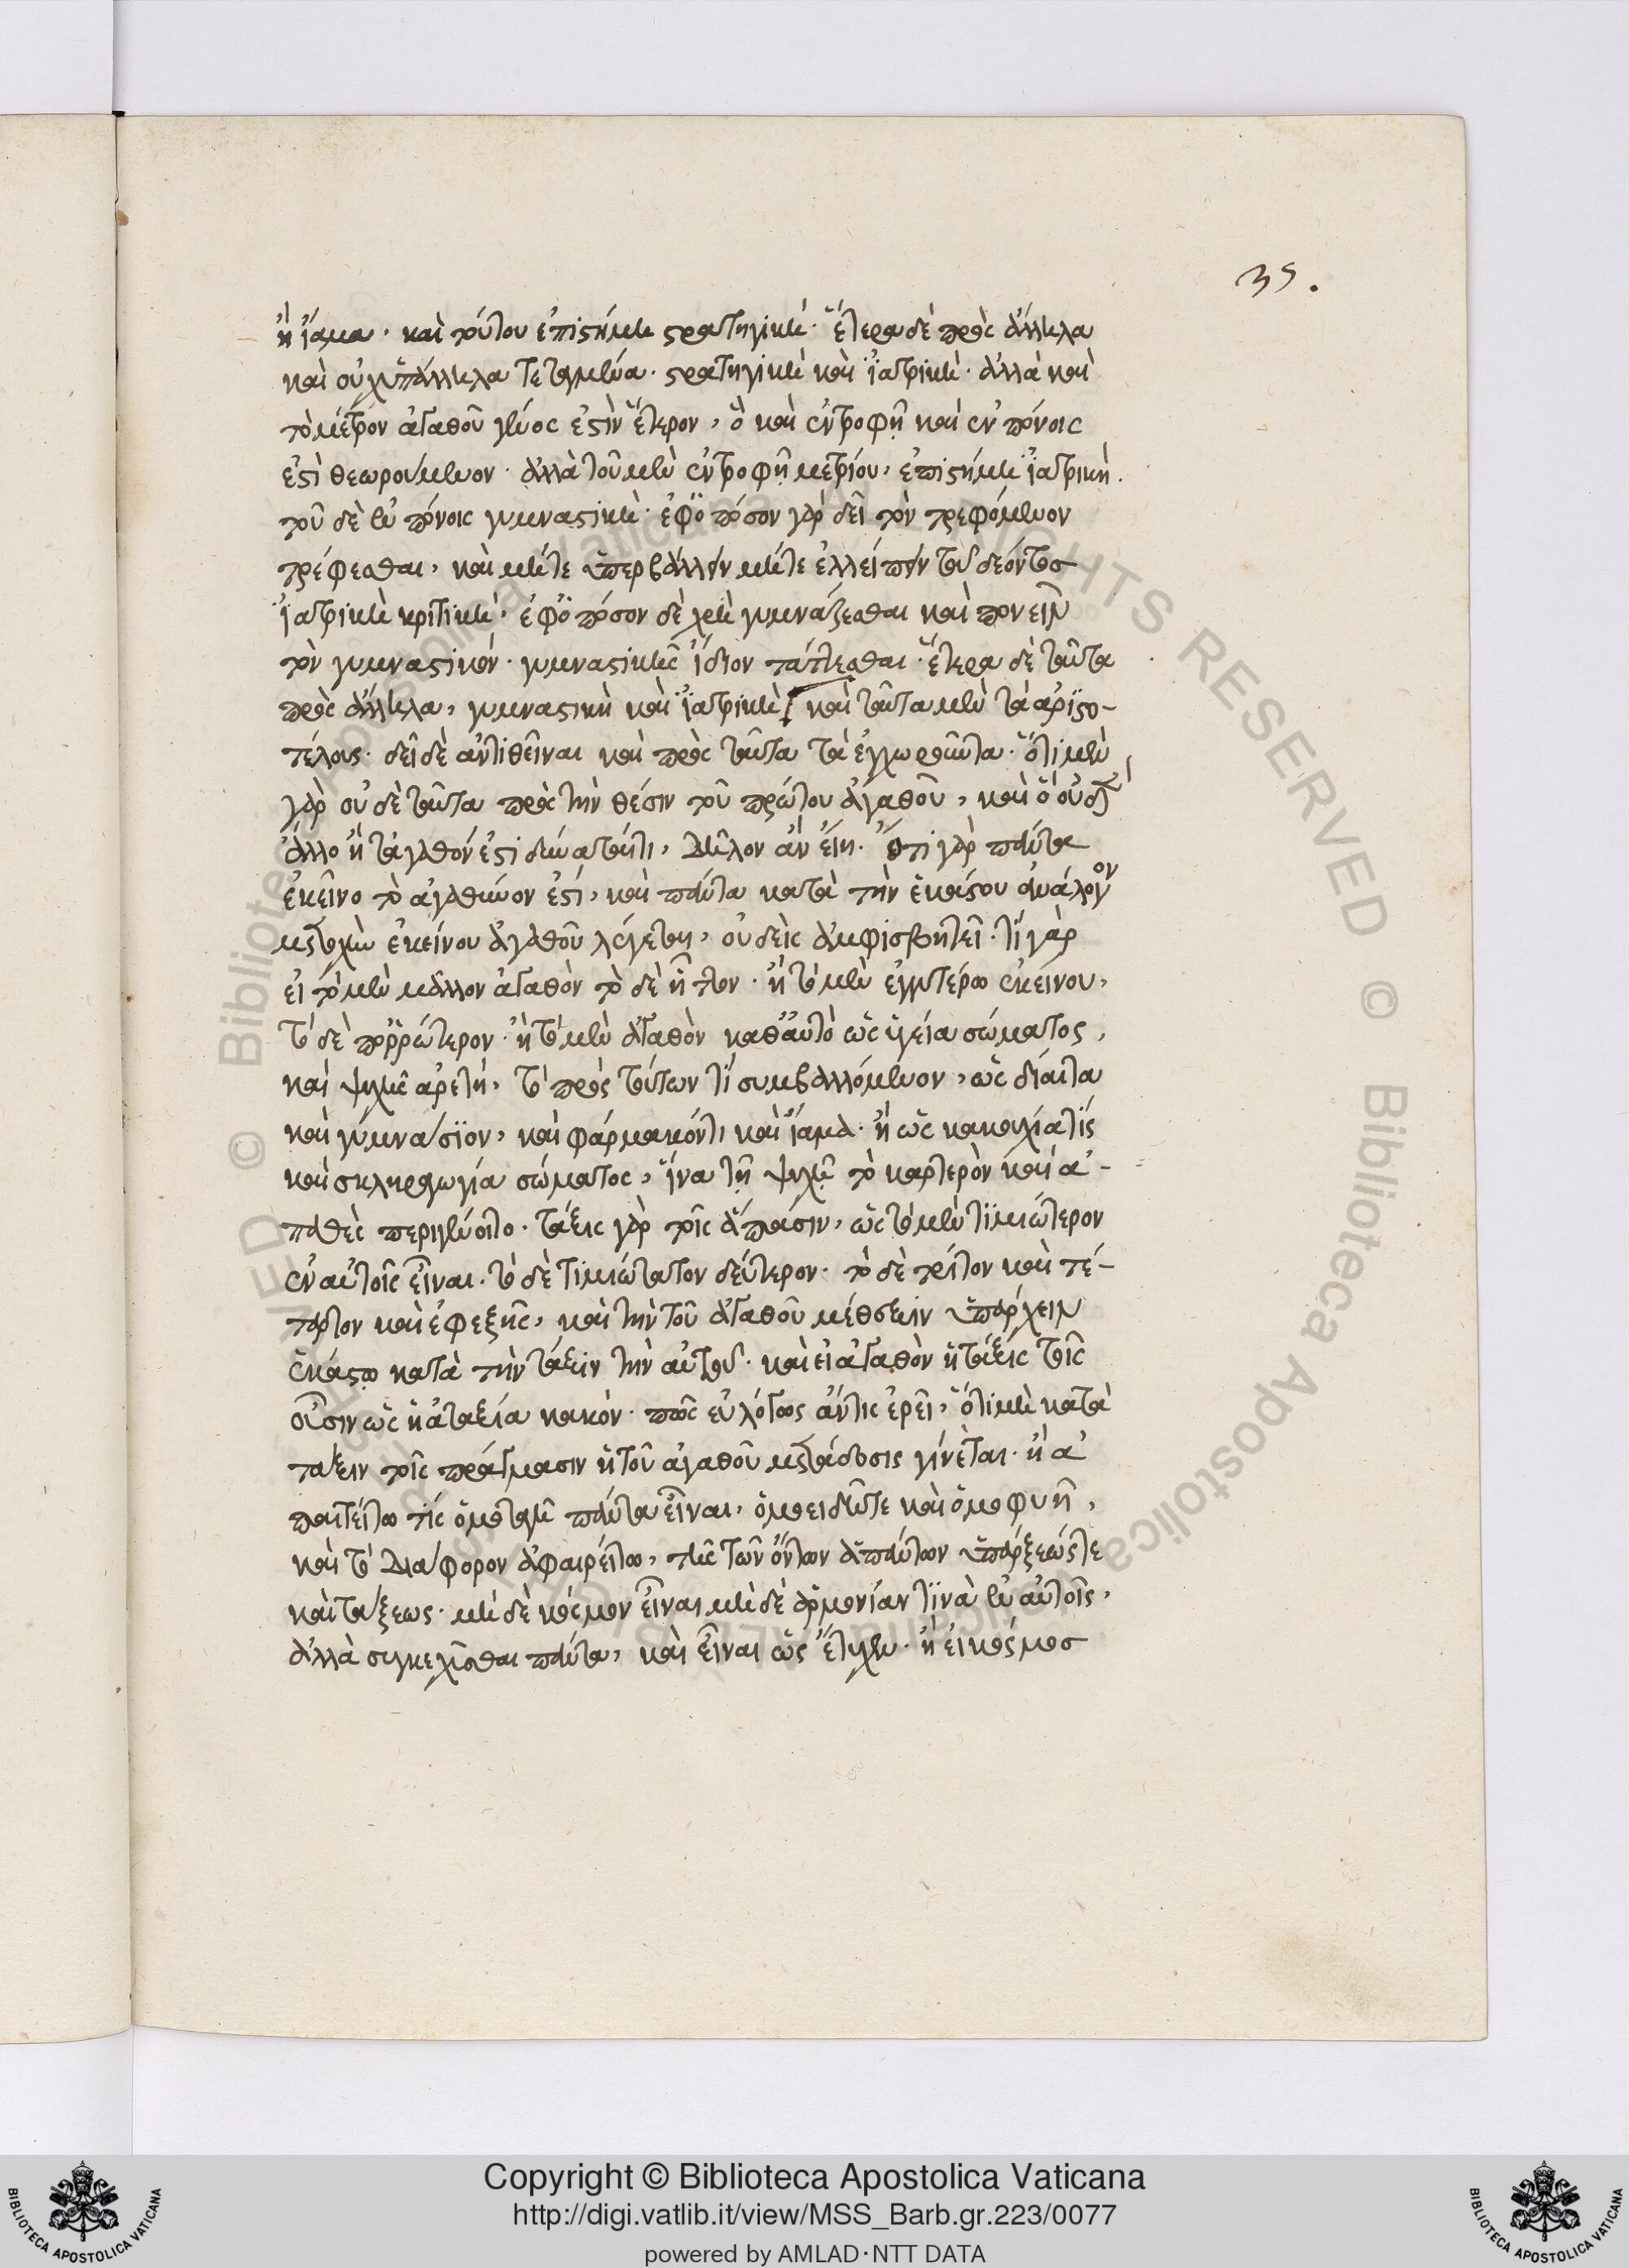 35.
ἢ ἴαμα· καὶ τούτου ἐπιστήμη στρατηγική· ἕτερα δὲ πρὸς ἄλληλα
καὶ οὐχ ὑπάλληλα τεταγμένα· στρατηγικὴ καὶ ἰατρική· ἀλλὰ καὶ
τὸ μέτρον ἀγαθοῦ γένος ἐστὶν ἕτερον, ὃ καὶ ἐν τροφῇ καὶ ἐν πόνοις
ἐστὶ θεωρούμενον· ἀλλὰ τοῦ μὲν ἐν τροφῇ μετρίου, ἐπιστήμη ἰατρική.
τοῦ δὲ ἐν πόνοις γυμναστική· ἐφ' ὅ πόσον γὰρ δεῖ τὸν τρεφόμενον
τρέφεσθαι, καὶ μήτε ὑπερβάλλειν μήτε ἐλλείπειν τοῦ δέοντος
ἰατρικὴ κριτική, ἐφ' ὅ πόσον δὲ χρὴ γυμνάζεσθαι καὶ πονεῖν
τὸν γυμναστικόν· γυμναστικῆς ἴδιον τάττεσθαι· ἕτερα δὲ ταῦτα
πρὸς ἄλληλα, γυμναστικὴ καὶ ἰατρική καὶ ταῦτα μὲν τὰ ἀριστο-
τέλους· δεῖ δὲ ἀντιθεῖναι καὶ πρὸς ταῦτα τὰ ἐγχωροῦντα· ὅτι μὲν
γὰρ οὐδὲ ταῦτα πρὸς τὴν θέσιν τοῦ πρώτου ἀγαθοῦ, καὶ ὃ οὐδὲν
ἄλλο ἢ τἀγαθόν ἐστι δύναταί τι, δῆλον ἂν εἴη. Ὅτι γὰρ πάντα
ἐκεῖνο τὸ ἀγαθύνον ἐστί, καὶ πάντα κατὰ τὴν ἑκάστου ἀνάλογον
μετοχὴν ἐκείνου ἀγαθοῦ λέγεται, οὐδεὶς ἀμφισβητεῖ· τί γὰρ
εἰ τὸ μὲν μᾶλλον ἀγαθὸν τὸ δὲ ἧττον· ἢ τὸ μὲν ἐγγυτέρω ἐκείνου,
τὸ δὲ πορρώτερον· ἢ τὸ μὲν ἀγαθὸν καθ' αὑτὸ ὡς ὑγεία σώματος,
καὶ ψυχῆς ἀρετή, τὸ πρὸς τούτων τί συμβαλλόμενον, ὡς δίαιτα
καὶ γυμνάσιον, καὶ φάρμακόν τι καὶ ἴαμα· ἢ ὡς κακουχία τίς
καὶ σκληραγωγία σώματος, ἵνα τῇ ψυχῇ τὸ καρτερὸν καὶ ἀ-
παθὲς περιγένοιτο· τάξις γὰρ τοῖς ἅπασιν, ὡς τὸ μὲν τιμιώτερον
ἐν αὐτοῖς εἶναι· τὸ δὲ τιμιώτατον δεύτερον· τὸ δὲ τρίτον καὶ τέ-
ταρτον καὶ ἐφεξῆς, καὶ τὴν τοῦ ἀγαθοῦ μέθεξιν ὑπάρχειν
ἑκάστῳ κατὰ τὴν τάξιν τὴν αὐτοῦ· καὶ εἰ ἀγαθὸν ἡ τάξις τοῖς
οὖσιν ὡς ἡ ἀταξία κακόν· πῶς εὐλόγως ἄν τις ἐρεῖ, ὅτι μὴ κατὰ
τάξιν τοῖς πράγμασιν ἡ τοῦ ἀγαθοῦ μετάδοσις γίνεται· ἢ ἀ
παιτείτω τίς ὁμοταγῆ πάντα εἶναι, ὁμοειδῆ τε καὶ ὁμοφυῆ,
καὶ τὸ διάφορον ἀφαιρείτω, τῆς τῶν ὄντων ἁπάντων ὑπάρξεώς τε
καὶ τάξεως· μὴ δὲ κόσμον εἶναι μὴ δὲ ἁρμονίαν τινὰ ἐν αὐτοῖς,
ἀλλὰ συγκεχύσθαι πάντα, καὶ εἶναι ὡς ἔτυχεν· ἢ εἰ κόσμος
© Biblioteca Apostolica Vaticana ALL RIGHTS RESERVED
Copyright © Biblioteca Apostolica Vaticana
http://digi.vatlib.it/view/MSS_Barb.gr.223/0077
powered by AMLAD·NTT DATA
BIBLIOTECA APOSTOLICA VATICANA
BIBLIOTECA APOSTOLICA VATICANA